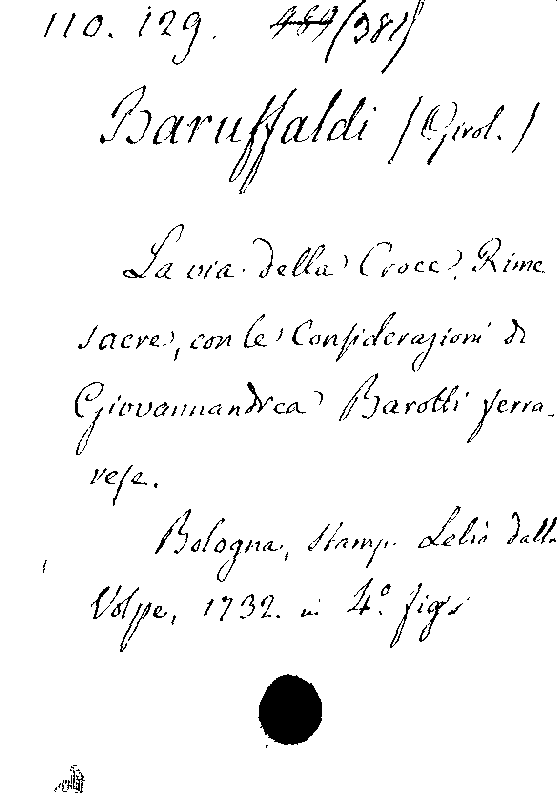 110. 129. 484 (381)
Baruffaldi (Girol.)
La via della Croce. Rime
sacre, con le Considerazioni di
Giovannandrea Barotti ferra-
rese.
Bologna, Stamp. Lelio dalla
Volpe, 1732. in 4.° fig.